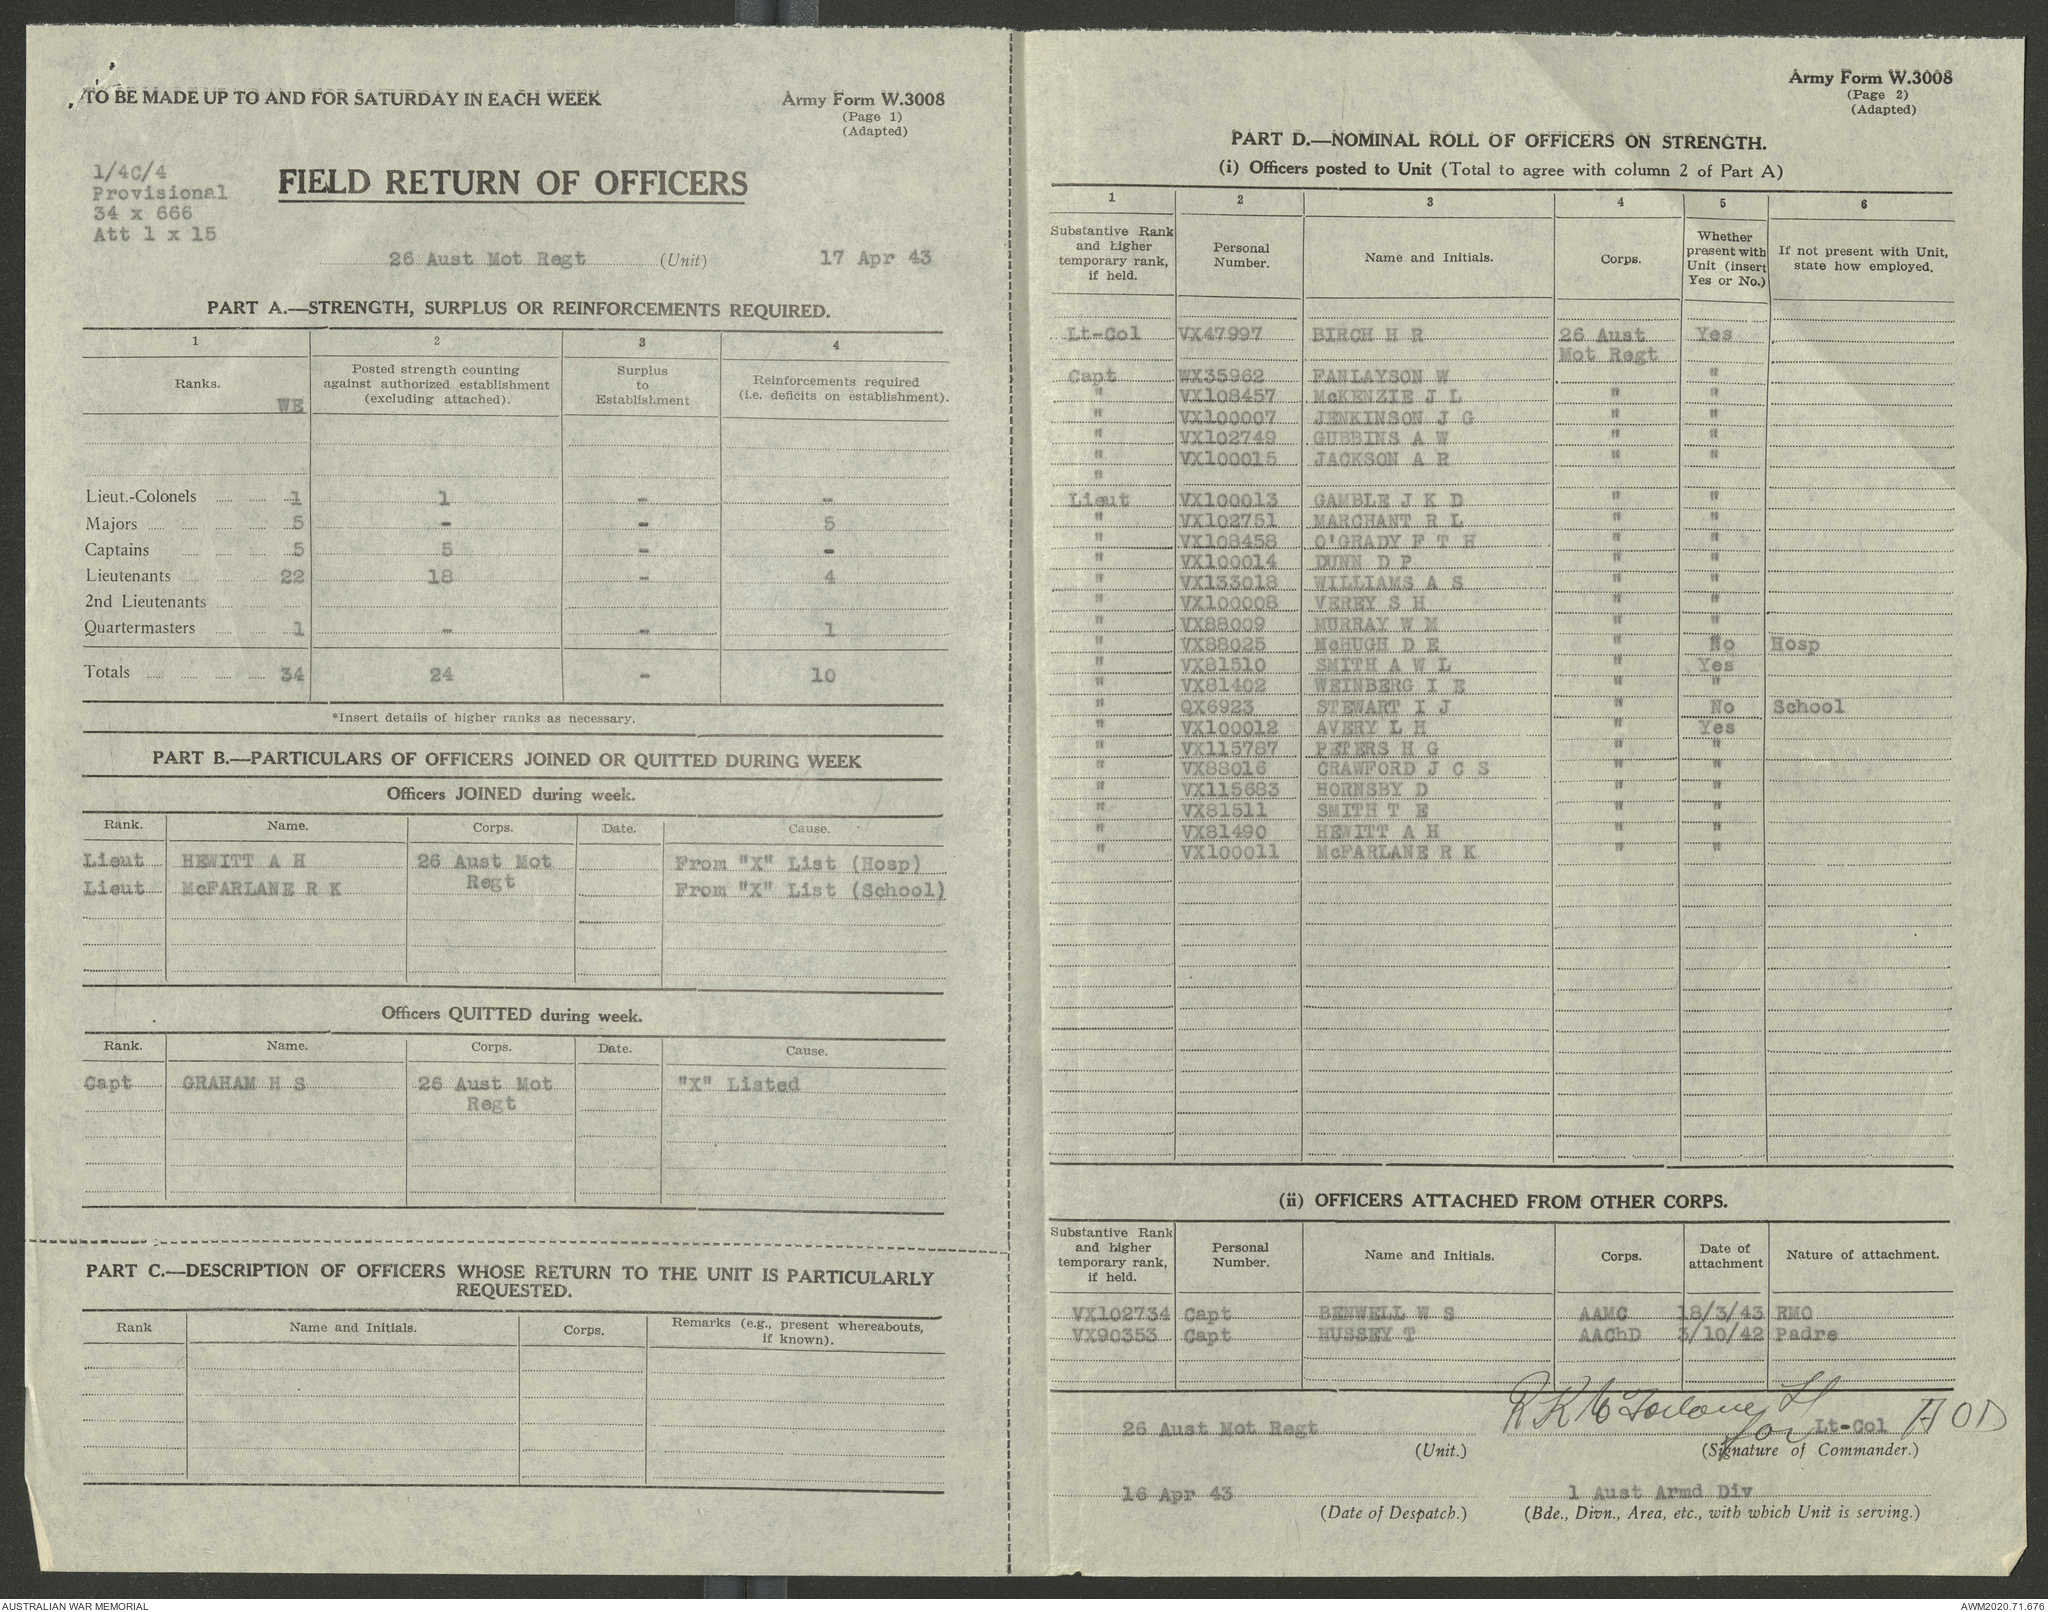 TO BE MADE UP TO AND FOR SATURDAY IN EACH WEEK
Army Form W.3008
(Page 1)
(Adapted)
1/4C/4
Provisional
34 x 666
Att 1 x 15
FIELD RETURN OF OFFICERS
26 Aust Mot Regt (Unit) 17 Apr 43
PART A.—STRENGTH, SURPLUS OR REINFORCEMENTS REQUIRED.
1 2 3 4
Ranks. WE Posted strength counting against authorized establishment (excluding attached). Surplus to Establishment Reinforcements required (i.e. deficits on establishment).
Lieut.-Colonels 1 1 - -
Majors 5 - - 5
Captains 5 5 - -
Lieutenants 22 18 - 4
2nd Lieutenants
Quartermasters 1 - - 1
Totals 34 24 - 10
*Insert details of higher ranks as necessary.
PART B.—PARTICULARS OF OFFICERS JOINED OR QUITTED DURING WEEK
Officers JOINED during week.
Rank. Name. Corps. Date. Cause.
Lieut HEWITT A H 26 Aust Mot From "X" List (Hosp)
Regt
Lieut McFARLANE R K From "X" List (School)
Officers QUITTED during week.
Rank. Name. Corps. Date. Cause.
Capt GRAHAM H S 26 Aust Mot "X" Listed
Regt
PART C.—DESCRIPTION OF OFFICERS WHOSE RETURN TO THE UNIT IS PARTICULARLY
REQUESTED.
Rank Name and Initials. Corps. Remarks (e.g., present whereabouts, if known).
Army Form W.3008
(Page 2)
(Adapted)
PART D.—NOMINAL ROLL OF OFFICERS ON STRENGTH.
(i) Officers posted to Unit (Total to agree with column 2 of Part A)
1 2 3 4 5 6
Substantive Rank and higher temporary rank, if held. Personal Number. Name and Initials. Corps. Whether present with Unit (insert Yes or No.) If not present with Unit, state how employed.
Lt-Col VX47997 BIRCH H R 26 Aust Yes
Mot Regt
Capt WX35962 FANLAYSON W "
" VX108457 McKENZIE J L " "
" VX100007 JENKINSON J G " "
" VX102749 GUBBINS A W " "
" VX100015 JACKSON A R " "
"
Lieut VX100013 GAMBLE J K D " "
" VX102751 MARCHANT R L " "
" VX108458 O'GRADY F T H " "
" VX100014 DUNN D P " "
" VX133018 WILLIAMS A S " "
" VX100008 VEREY S H " "
" VX88009 MURRAY W M " "
" VX88025 McHUGH D E " No Hosp
" VX81510 SMITH A W L " Yes
" VX81402 WEINBERG I E " "
" QX6923 STEWART I J " No School
" VX100012 AVERY L H " Yes
" VX115787 PETERS H G " "
" VX88016 CRAWFORD J C S " "
" VX115683 HORNSBY D " "
" VX81511 SMITH T E " "
" VX81490 HEWITT A H " "
" VX100011 McFARLANE R K " "
(ii) OFFICERS ATTACHED FROM OTHER CORPS.
Substantive Rank and higher temporary rank, if held. Personal Number. Name and Initials. Corps. Date of attachment Nature of attachment.
VX102734 Capt BENWELL W S AAMC 18/3/43 RMO
VX90353 Capt HUSSEY T AAChD 3/10/42 Padre
R K McFarlane Lt
26 Aust Mot Regt for Lt-Col AOD
(Unit.) (Signature of Commander.)
16 Apr 43 1 Aust Armd Div
(Date of Despatch.) (Bde., Divn., Area, etc., with which Unit is serving.)
AUSTRALIAN WAR MEMORIAL
AWM2020.71.676